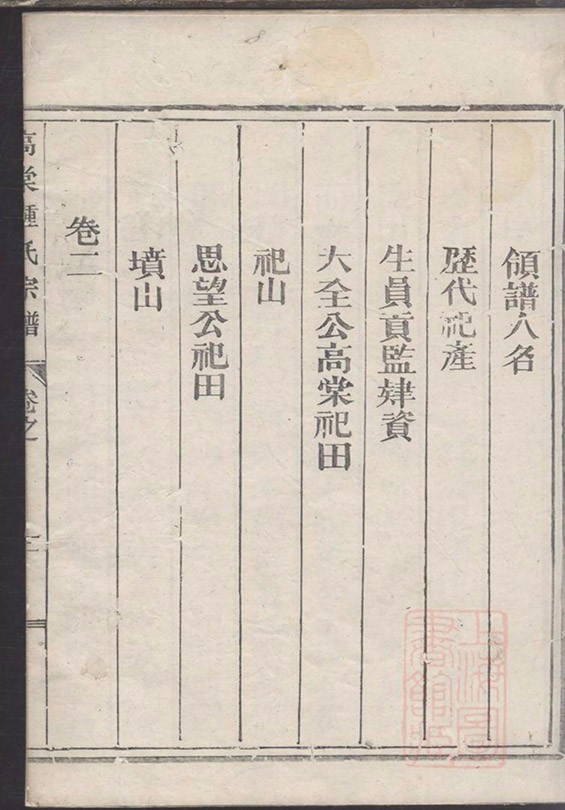 領譜人名
歷代祀產
生員貢監肄資
大全公高棠祀田
祀山
思望公祀田
墳山
卷二
高棠鍾氏宗譜
卷之
上海圖書館藏